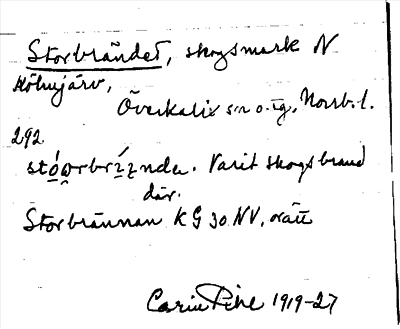 Storbrändet, skogsmark N
Hölmjärv,
Överkalix sn o. tg, Norrb. l.
292
Varit skogsbrand
där.
Storbrännan KG 30 NV, orätt
Carin Pihl 1919-27